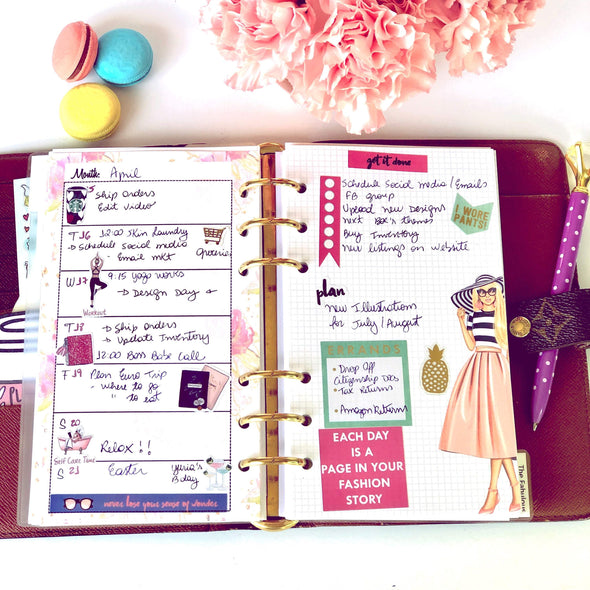 Month: April
Ship Orders
Edit Video
T 16 12:00 Skin Laundry
→ Schedule Social media
- Email mkt
Groceries
W 17 9:15 yoga works
→ Design Day
Workout
T 18 → Ship Orders
→ Update Inventory
12:00 Call
F 19 Plan Euro Trip
- Where to go
" to eat
S 20
Relax!!
Self Care Time
S 21 Easter Yuria's
Bday
never lose your sense of wonder
get it done
Schedule Social media/Emails
FB group
Upload new Designs
next Box's themes
Buy Inventory
New listings on website
I WORE
PANTS!
plan
New Illustrations
for July/August
ERRANDS
• Drop Off
Citizenship Docs
• Tax Returns
• Amazon Returns
EACH DAY
IS A
PAGE IN YOUR
FASHION
STORY
The Fabulous